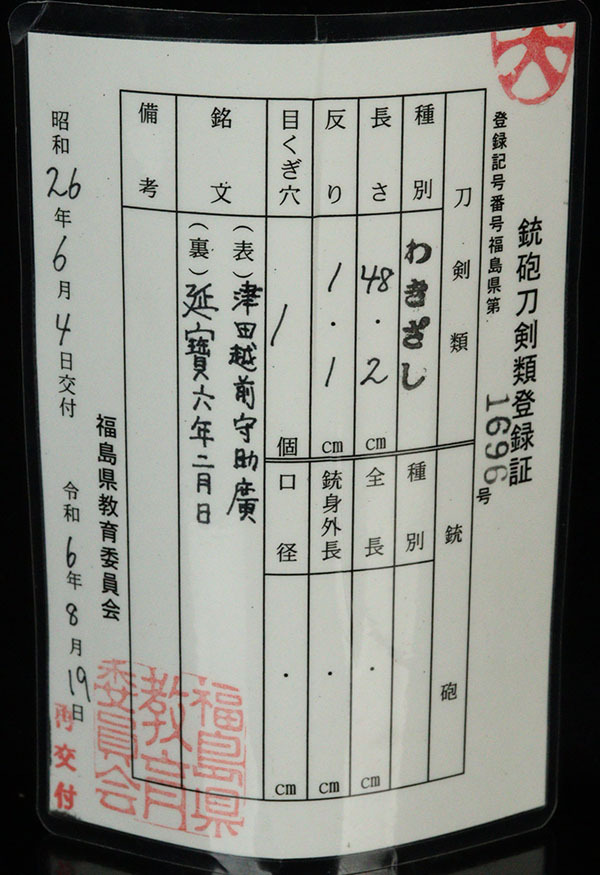 銃砲刀剣類登録証
登録記号番号福島県第 1696 号
刀剣類
銃砲
種別 わきざし
種別
長さ 48.2 cm
全長 . cm
反り 1.1 cm
銃身外長 . cm
目くぎ穴 1 個
口径 . cm
銘文 (表)津田越前守助廣
(裏)延寶六年二月日
備考
福島県教育委員会
昭和26年6月4日交付 令和6年8月19日
再交付
福島県
教育
委員会